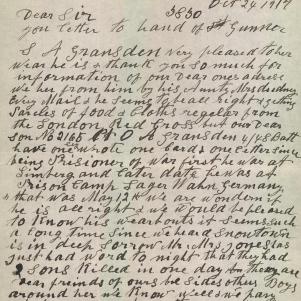 Oct 24 1917
Dear Sir 3830
you letter to hand of Gunner
S A Gransden Very pleased to her
wear he is & thank you so much for
information of our Dear one adress
we her from him by his Aunty Mrs
Every Mail & he seems to be all right & getting
Parcles of food & Cloths reguler from
the London Red Cross but our Dear
Son A Gransden 4/48 Batt
have one wrote one Card & one Letter since
being Prisioner of War first he was at
Limberg and Later date he was at
Prison Camp Lager Wahn Germany
that was May 12th we are wondern if
he is all right & we would be pleased
to know his wearabouts it seams such
a long time since we heard Snowtown
is in deep Sorrow Mr & Mrs Jones has
just had word to night that they had
2 Sons Killed in one day they are
dear friends of ours be Sides other Boys
around her we Know well & so many